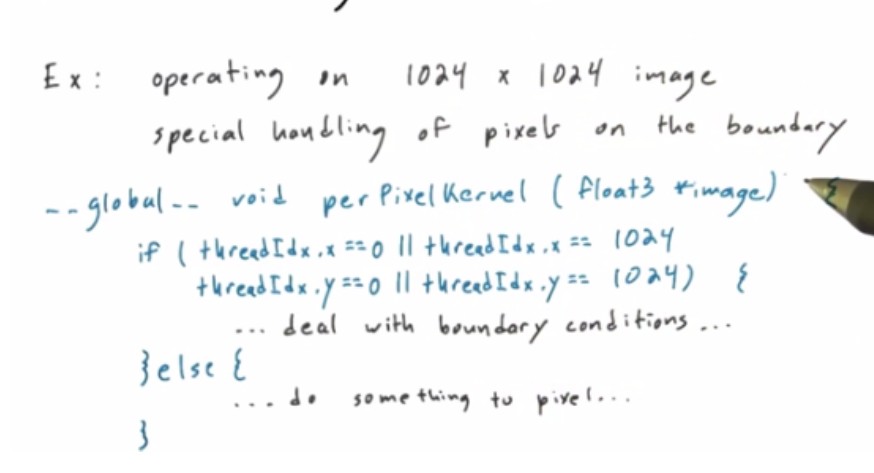 Ex: operating on 1024 x 1024 image
special handling of pixels on the boundary
__global__ void perPixelKernel ( float3 *image) {
if ( threadIdx.x ==0 || threadIdx.x == 1024
threadIdx.y ==0 || threadIdx.y == 1024) {
... deal with boundary conditions ...
}else {
... do something to pixel...
}